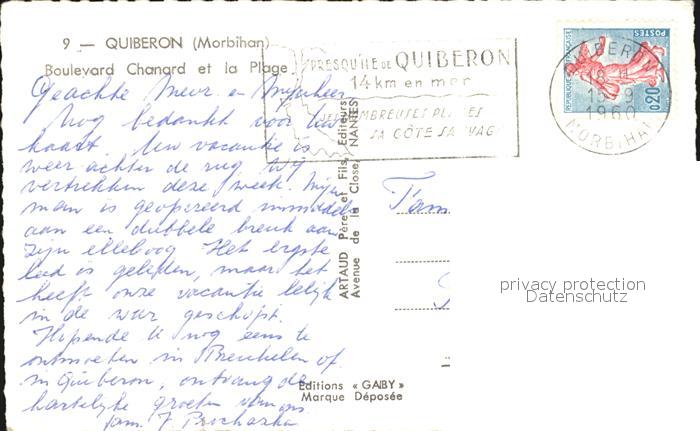 9 — QUIBERON (Morbihan)
Boulevard Chanard et la Plage
Geachte Mevr. en Mijnheer
Nog bedankt voor Uw
kaart. Uw vacantie is
weer achter de rug, wij
vertrekken deze week. Mijn
man is geopereerd inmiddels
aan een dubbele breuk aan
zijn elleboog Het ergste
leed is geleden, maar het
heeft onze vacantie lelijk
in de war geschopt.
Hopende U nog eens te
ontmoeten in Breukelen of
in Quiberon, ontvang de
hartelijke groeten van ons
fam. F. Prochazka
PRESQU'ILE DE QUIBERON
14 km en mer
SES NOMBREUSES PLAGES
SA CÔTE SAUVAGE
QUIBERON
18 H
1960
MORBIHAN
REPUBLIQUE FRANÇAISE
POSTES
0,20
ARTAUD Père et Fils, Editeurs
Avenue de la Close, NANTES
Fam
privacy protection
Datenschutz
Editions « GABY »
Marque Déposée